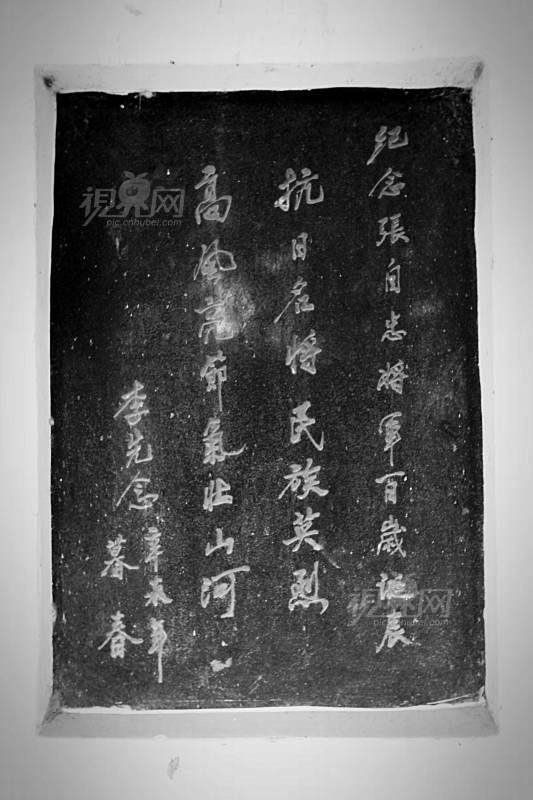 紀念張自忠將軍百歲誕辰
抗日名將民族英烈
高風亮節氣壯山河
李先念
辛未年
暮春
視界网
pic.cnhubei.com
視界网
pic.cnhubei.com